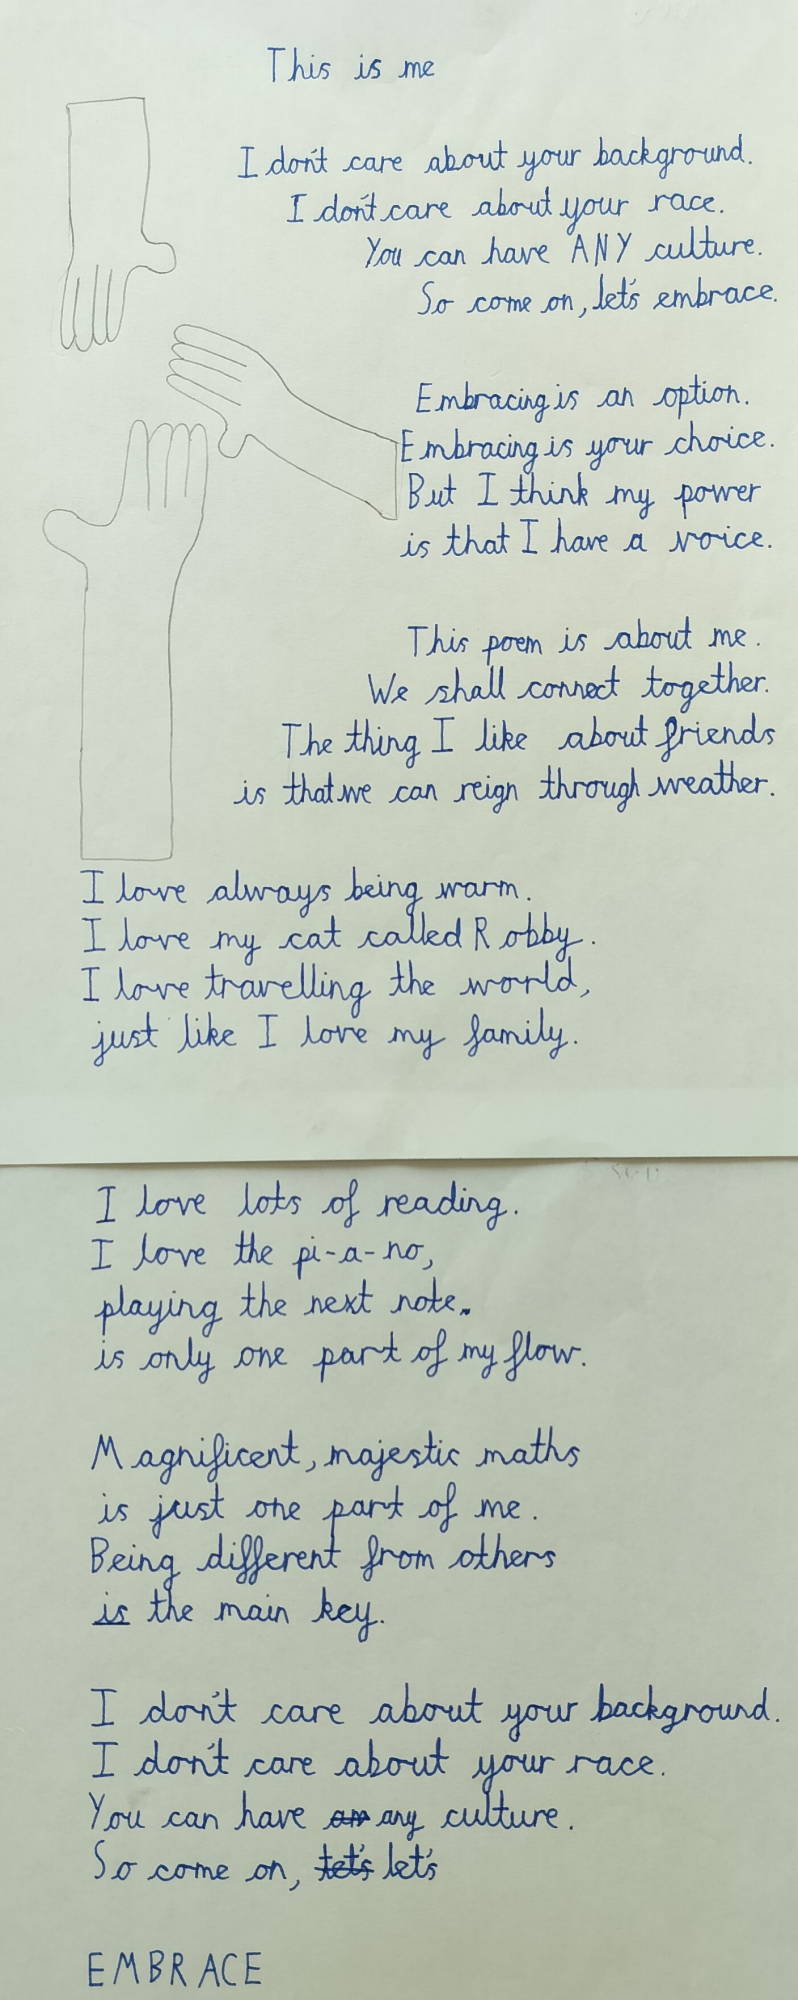 This is me
I don't care about your background.
I don't care about your race.
You can have ANY culture.
So come on, let's embrace.
Embracing is an option.
Embracing is your choice.
But I think my power
is that I have a voice.
This poem is about me.
We shall connect together.
The thing I like about friends
is that we can reign through weather.
I love always being warm.
I love my cat called Robby.
I love travelling the world,
just like I love my family.
I love lots of reading.
I love the pi-a-no,
playing the next note.
is only one part of my flow.
Magnificent, majestic maths
is just one part of me.
Being different from others
is the main key.
I don't care about your background.
I don't care about your race.
You can have an any culture.
So come on, let's let's
EMBRACE